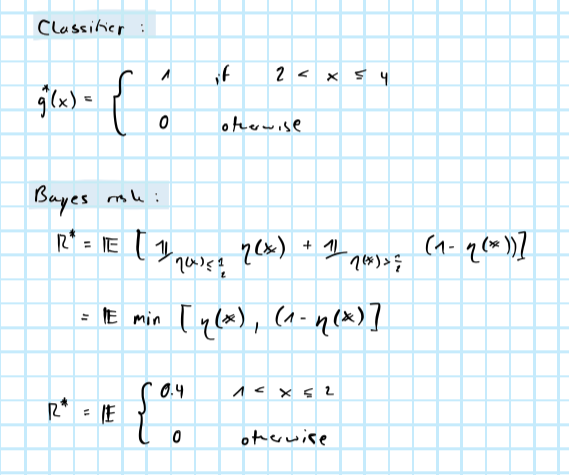 Classifier :
g*(x) = { 1 if 2 < x ≤ 4
0 otherwise
Bayes risk :
R* = 𝔼 [ 𝟙_{η(x) ≤ 1/2} η(x) + 𝟙_{η(x) > 1/2} (1 - η(x)) ]
= 𝔼 min [ η(x), (1 - η(x) ]
R* = 𝔼 { 0.4 1 < x ≤ 2
0 otherwise